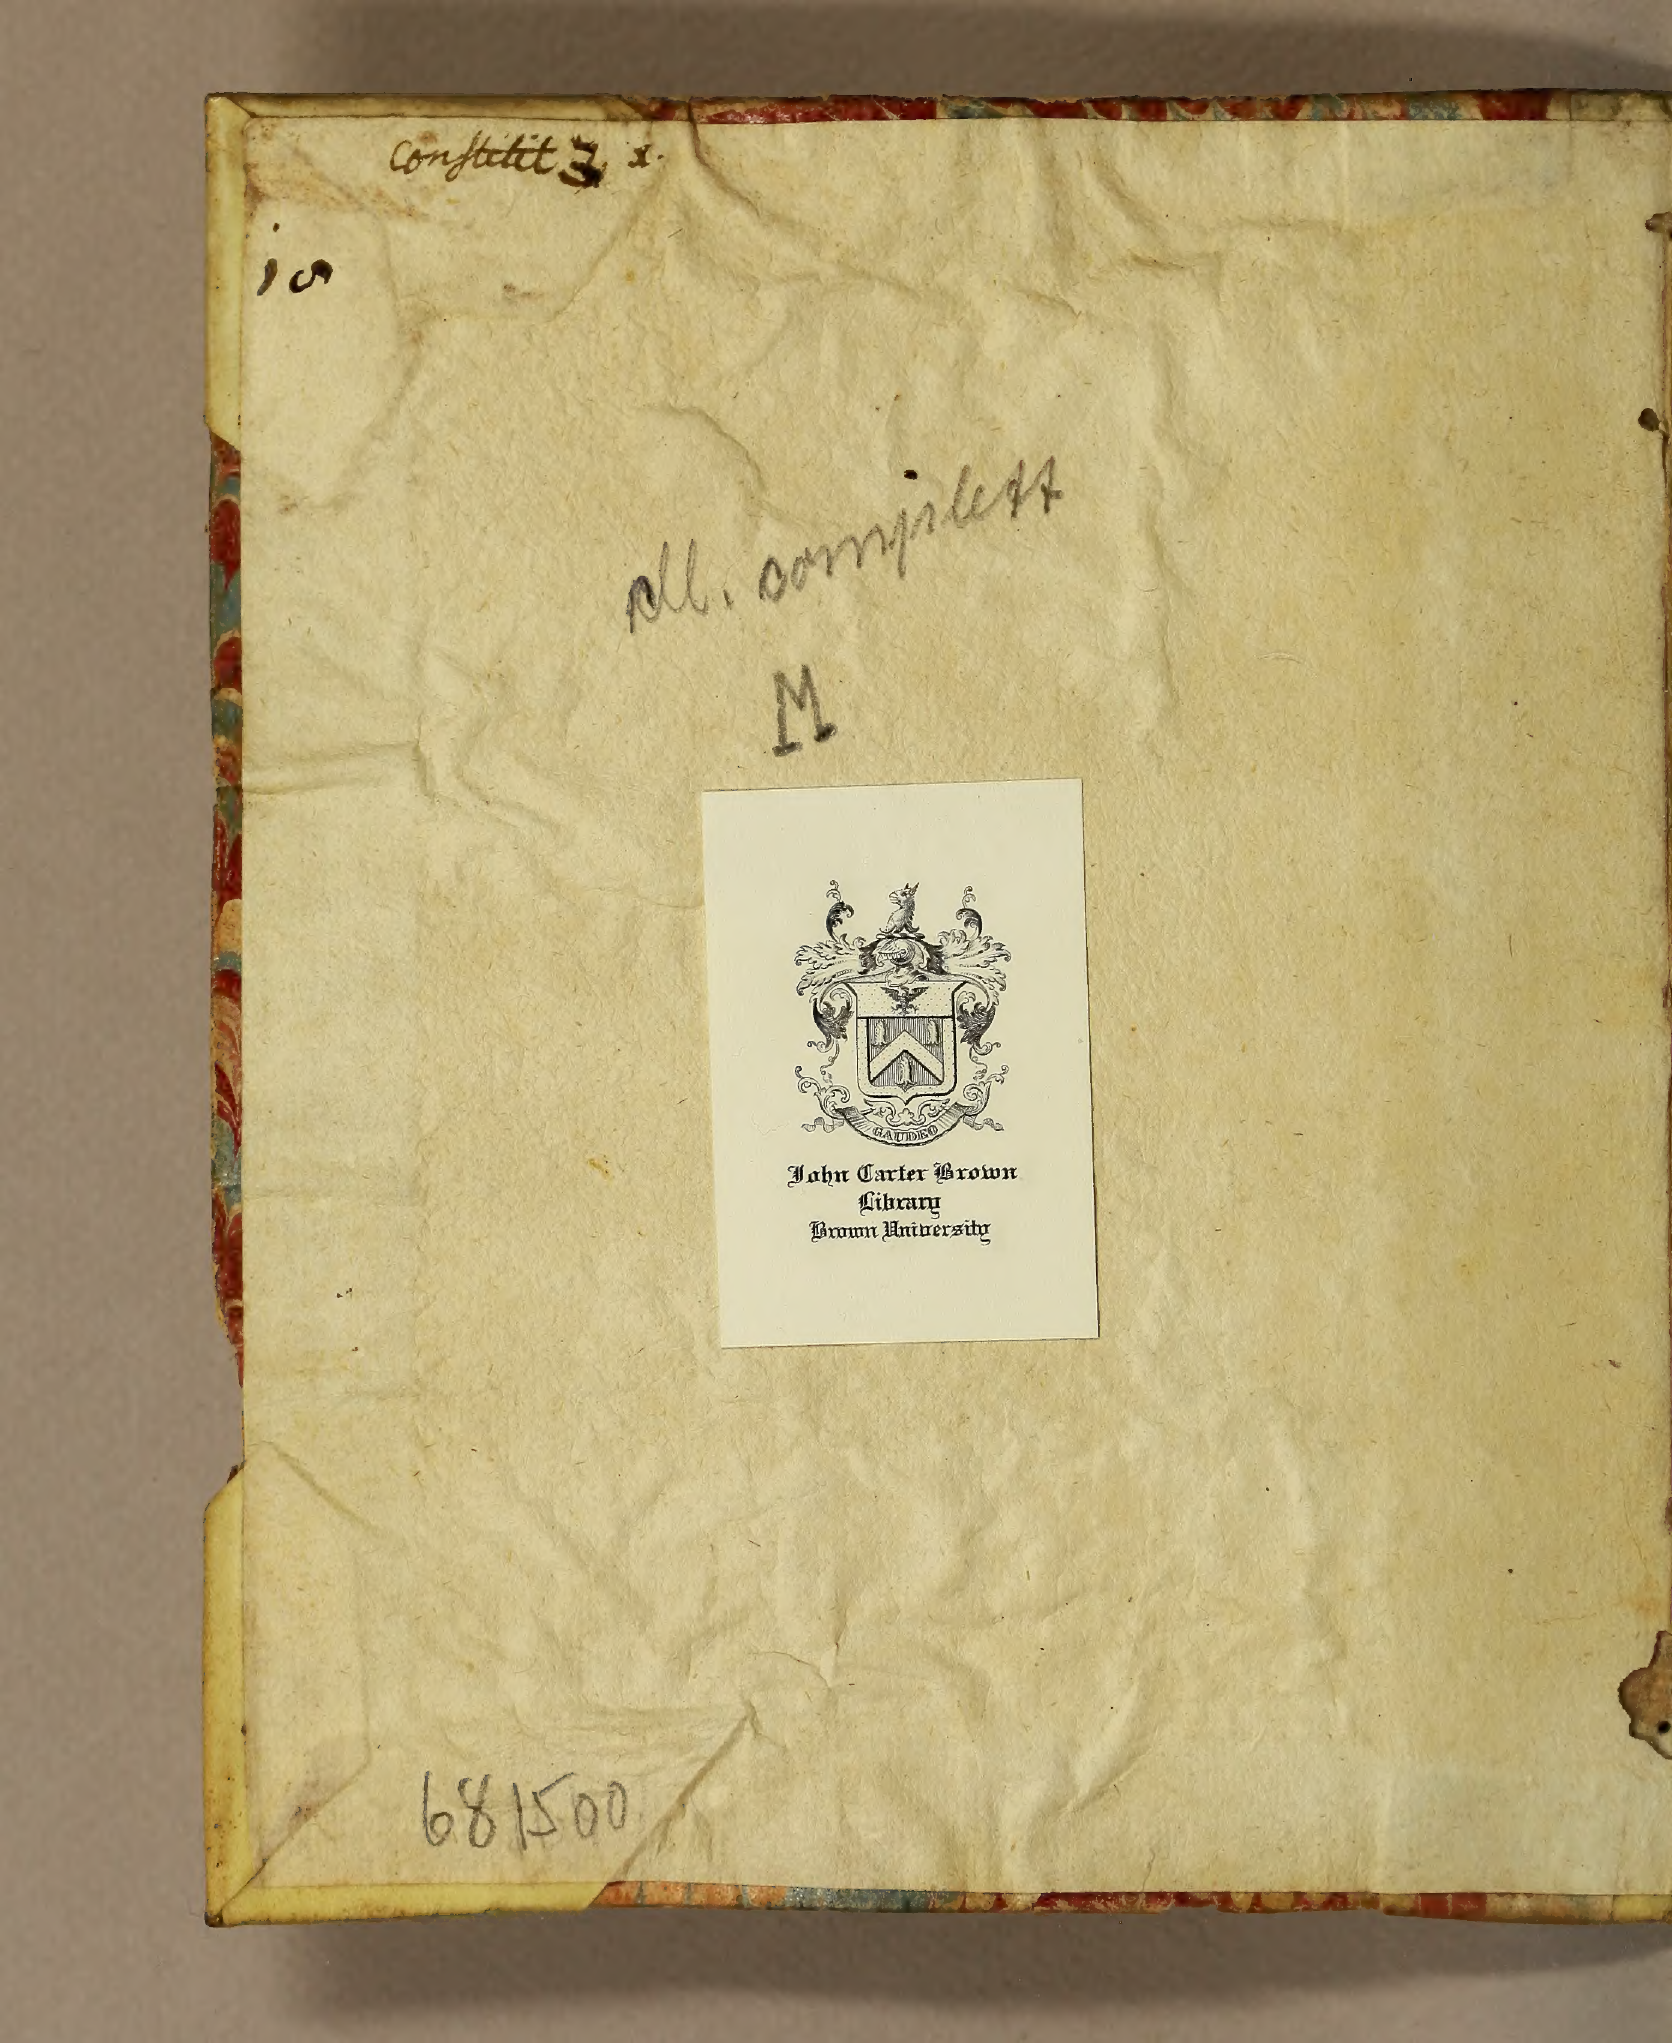 Constitit 3 x.
15
cll. complett
M
GAUDEO
John Carter Brown
Library
Brown University
681500